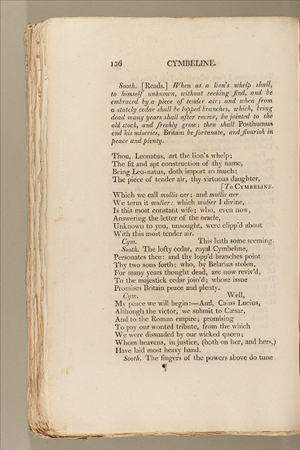 136 CYMBELINE.
Sooth. [Reads.] When as a lion's whelp shall,
to himself unknown, without seeking find, and be
embraced by a piece of tender air; and when from
a stately cedar shall be lopped branches, which, being
dead many years shall after revive, be jointed to the
old stock, and freshly grow; then shall Posthumus
end his miseries, Britain be fortunate, and flourish in
peace and plenty.
Thou, Leonatus, art the lion's whelp;
The fit and apt construction of thy name,
Being Leo-natus, doth import so much:
The piece of tender air, thy virtuous daughter,
[To CYMBELINE.
Which we call mollis aer; and mollis aer
We term it mulier: which mulier I divine,
Is this most constant wife; who, even now,
Answering the letter of the oracle,
Unknown to you, unsought, were clipp'd about
With this most tender air.
Cym. This hath some seeming.
Sooth. The lofty cedar, royal Cymbeline,
Personates thee: and thy lopp'd branches point
Thy two sons forth: who, by Belarius stolen,
For many years thought dead, are now reviv'd,
To the majestick cedar join'd; whose issue
Promises Britain peace and plenty.
Cym. Well,
My peace we will begin:—And, Caius Lucius,
Although the victor, we submit to Cæsar,
And to the Roman empire; promising
To pay our wonted tribute, from the which
We were dissuaded by our wicked queen;
Whom heavens, in justice, (both on her, and hers,)
Have laid most heavy hand.
Sooth. The fingers of the powers above do tune